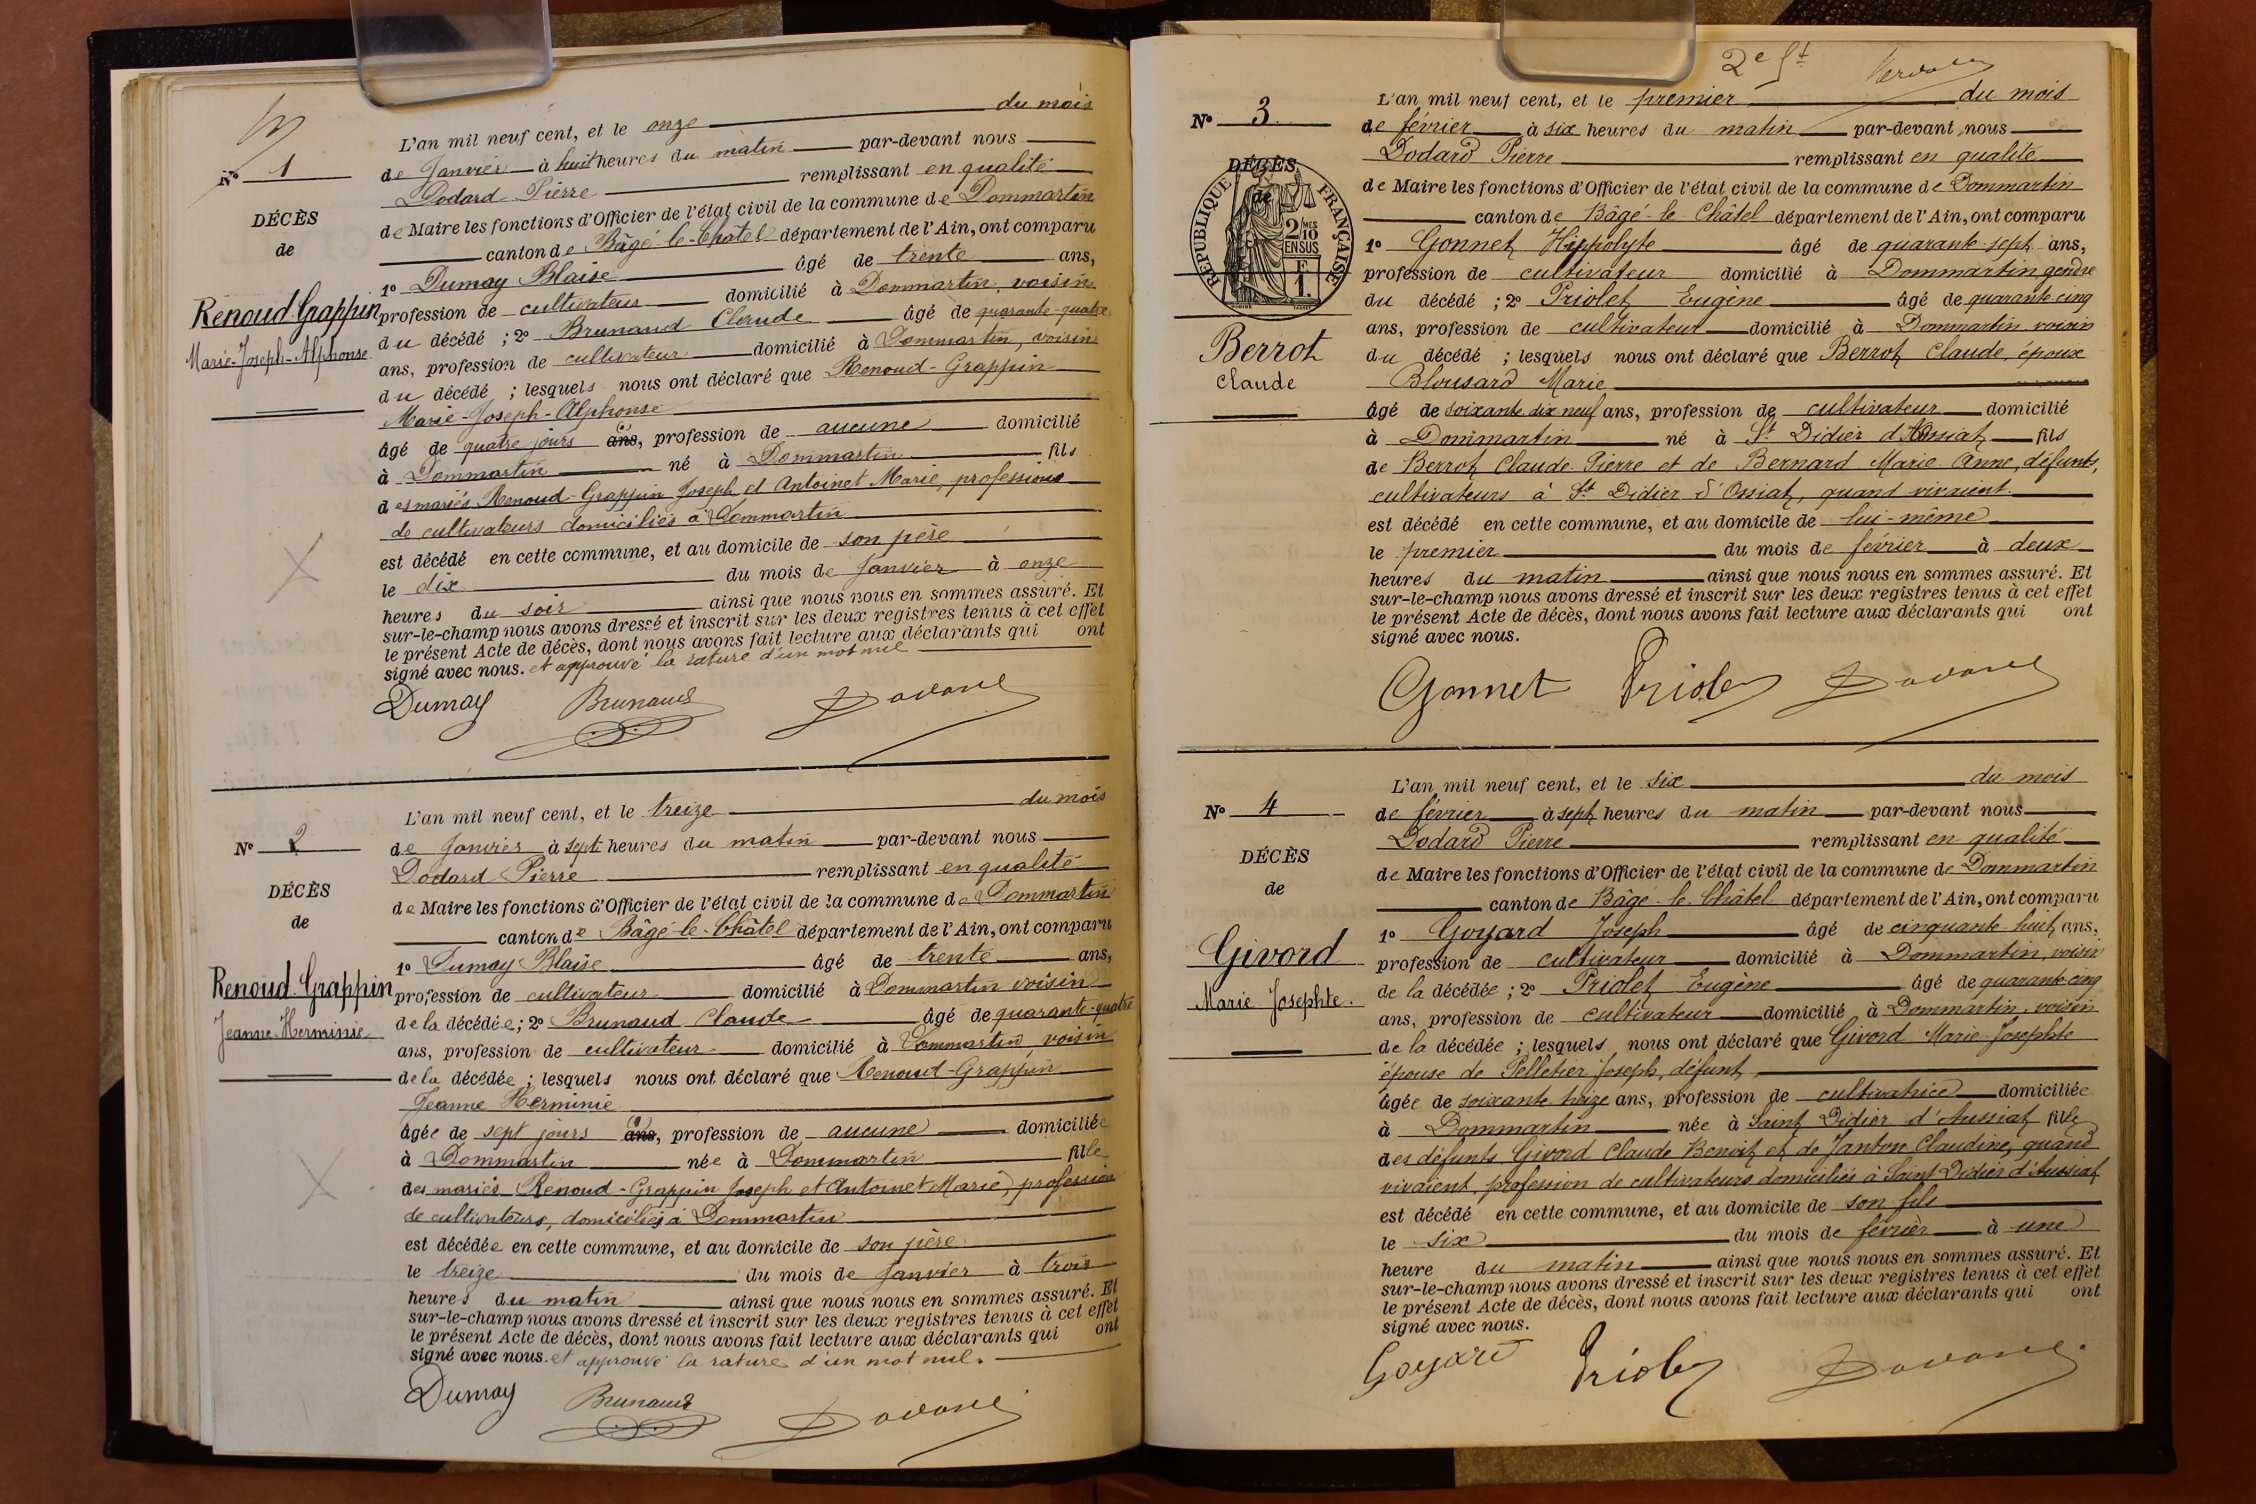 L'an mil neuf cent, et le onze du mois
de Janvier à huit heures du matin par-devant nous
Dodard Pierre remplissant en qualité
de Maire les fonctions d'Officier de l'état civil de la commune de Dommartin
canton de Bâgé-le-Châtel département de l'Ain, ont comparu
1º Dumay Blaise âgé de trente ans,
profession de cultivateur domicilié à Dommartin, voisin
du décédé ; 2º Brunaud Claude âgé de quarante-quatre
ans, profession de cultivateur domicilié à Dommartin, voisin
du décédé ; lesquels nous ont déclaré que Renoud-Grappin
Marie-Joseph-Alphonse
âgé de quatre jours ans, profession de aucune domicilié
à Dommartin né à Dommartin fils
des mariés Renoud-Grappin Joseph et Antoinet Marie, profession
de cultivateurs domiciliés à Dommartin
est décédé en cette commune, et au domicile de son père
le dix du mois de Janvier à onze
heures du soir ainsi que nous nous en sommes assuré. Et
sur-le-champ nous avons dressé et inscrit sur les deux registres tenus à cet effet
le présent Acte de décès, dont nous avons fait lecture aux déclarants qui ont
signé avec nous. et approuvé la rature d'un mot nul
Dumay Brunaud Dodard
Nº 1
DÉCÈS
de
Renoud Grappin
Marie-Joseph-Alphonse
L'an mil neuf cent, et le treize du mois
de Janvier à sept heures du matin par-devant nous
Dodard Pierre remplissant en qualité
de Maire les fonctions d'Officier de l'état civil de la commune de Dommartin
canton de Bâgé-le-Châtel département de l'Ain, ont comparu
1º Dumay Blaise âgé de trente ans,
profession de cultivateur domicilié à Dommartin voisin
de la décédée ; 2º Brunaud Claude âgé de quarante-quatre
ans, profession de cultivateur domicilié à Dommartin, voisin
de la décédée ; lesquels nous ont déclaré que Renoud-Grappin
Jeanne Herminie
âgée de sept jours ans, profession de aucune domiciliée
à Dommartin née à Dommartin fille
des mariés Renoud-Grappin Joseph et Antoinet Marie, profession
de cultivateurs, domiciliés à Dommartin
est décédée en cette commune, et au domicile de son père
le treize du mois de Janvier à trois
heures du matin ainsi que nous nous en sommes assuré. Et
sur-le-champ nous avons dressé et inscrit sur les deux registres tenus à cet effet
le présent Acte de décès, dont nous avons fait lecture aux déclarants qui ont
signé avec nous. et approuvé la rature d'un mot nul.
Dumay Brunaud Dodard
Nº 2
DÉCÈS
de
Renoud Grappin
Jeanne-Herminie
2e St
L'an mil neuf cent, et le premier du mois
de février à six heures du matin par-devant nous
Dodard Pierre remplissant en qualité
de Maire les fonctions d'Officier de l'état civil de la commune de Dommartin
canton de Bâgé-le-Châtel département de l'Ain, ont comparu
1º Gonnet Hippolyte âgé de quarante-sept ans,
profession de cultivateur domicilié à Dommartin gendre
du décédé ; 2º Priolet Eugène âgé de quarante cinq
ans, profession de cultivateur domicilié à Dommartin voisin
du décédé ; lesquels nous ont déclaré que Berrot Claude, époux
Blousard Marie
âgé de soixante dix neuf ans, profession de cultivateur domicilié
à Dommartin né à St Didier d'Aussiat, fils
de Berrot Claude Pierre et de Bernard Marie Anne, défunts,
cultivateurs à St Didier d'Ossiat, quand vivaient.
est décédé en cette commune, et au domicile de lui-même
le premier du mois de février à deux
heures du matin ainsi que nous nous en sommes assuré. Et
sur-le-champ nous avons dressé et inscrit sur les deux registres tenus à cet effet
le présent Acte de décès, dont nous avons fait lecture aux déclarants qui ont
signé avec nous.
Gonnet Priolet Dodard
Nº 3
DÉCÈS
de
RÉPUBLIQUE FRANÇAISE
2/10MES
EN SUS
F
1.
Berrot
Claude
L'an mil neuf cent, et le six du mois
de février à sept heures du matin par-devant nous
Dodard Pierre remplissant en qualité
de Maire les fonctions d'Officier de l'état civil de la commune de Dommartin
canton de Bâgé-le-Châtel département de l'Ain, ont comparu
1º Goyard Joseph âgé de cinquante huit ans,
profession de cultivateur domicilié à Dommartin, voisin
de la décédée ; 2º Priolet Eugène âgé de quarante cinq
ans, profession de cultivateur domicilié à Dommartin, voisin
de la décédée ; lesquels nous ont déclaré que Givord Marie Josephte
épouse de Pelletier Joseph, défunt,
âgée de soixante treize ans, profession de cultivatrice domiciliée
à Dommartin née à Saint Didier d'Aussiat fille
des défunts Givord Claude Benoit et de Janton Claudine, quand
vivaient, profession de cultivateurs domiciliés à Saint Didier d'Aussiat
est décédé en cette commune, et au domicile de son fils
le six du mois de février à une
heure du matin ainsi que nous nous en sommes assuré. Et
sur-le-champ nous avons dressé et inscrit sur les deux registres tenus à cet effet
le présent Acte de décès, dont nous avons fait lecture aux déclarants qui ont
signé avec nous.
Goyard Priolet Dodard
Nº 4
DÉCÈS
de
Givord
Marie Josephte.